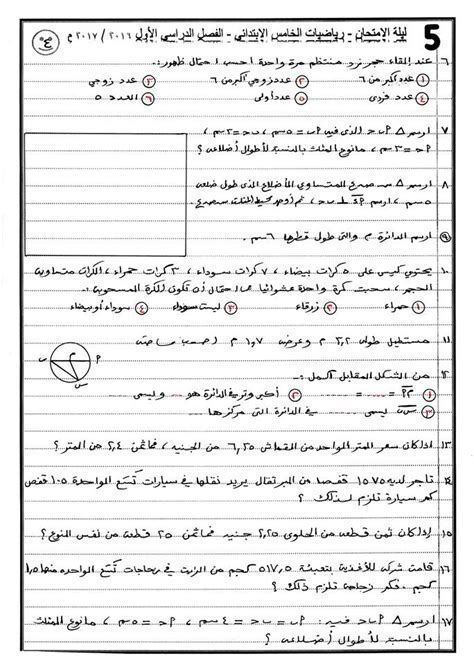 5 ليلة الإمتحان - رياضيات الخامس الإبتدائي - الفصل الدراسي الأول ٢٠١٦ / ٢٠١٧ م
٦ عند إلقاء حجر نرد منتظم مرة واحدة احسب احتمال ظهور:
١ عدد أكبر من ٦ ٢ عدد زوجي أكبر من ٦ ٣ عدد زوجي
٤ عدد فردي ٥ عدد أولى ٦ العدد ٥
٧ ارسم △ ٢ب حـ الذى فيه ٢ب = ٥ سم ، ب حـ = ٣ سم ،
٢حـ = ٣ سم ، ما نوع المثلث بالنسبة لأطوال أضلاعه ؟
٨ ارسم △ س ص ع المتساوى الأضلاع الذى طول ضلعه
٥ سم ، ارسم
٩ ارسم الدائرة م والتى طول قطرها ٦ سم .
١٠ يحتوي كيس على ٥ كرات بيضاء ، ٧ كرات سوداء ، ٣ كرات حمراء ، الكرات متساوية
الحجم ، سحبت كرة واحدة عشوائيا ما احتمال أن تكون الكرة المسحوبة :-
١ حمراء ٢ زرقاء ٣ ليست سوداء ٤ سوداء أو بيضاء
١١ مستطيل طوله ٣,٢ م وعرضه ١,٧ م احسب مساحته
١٢ من الشكل المقابل أكمل :-
١ ٢م = .... = .... ٢ أكبر وتر في الدائرة هو .... ويسمى ....
٣ س ص يسمى .... في الدائرة التى مركزها ....
٢ م ب س
١٣ إذا كان سعر المتر الواحد من القماش ٦,٢٥ من الجنيه ، فما ثمن ٢,٤ من المتر ؟
١٤ تاجر لديه ١٥٧٥ قفصا من البرتقال يريد نقلها في سيارات تسع الواحدة ١٠٥ قفص
كم سيارة تلزم لذلك ؟
١٥ إذا كان ثمن قطعة من الحلوى ٢,٢٥ جنيه فما ثمن ٢٥ قطعة من نفس النوع ؟
١٦ قامت شركة للأغذية بتعبئة ٥١٧,٥ كجم من الزيت في زجاجات تسع الواحدة منها ١,٥
كجم . فكم زجاجة تلزم ذلك ؟
١٧ ارسم △ ٢ب حـ فيه : ٢ب = ب حـ = ٤ سم ، ٢حـ = ٥ سم ، ما نوع المثلث
بالنسبة لأطوال أضلاعه ؟